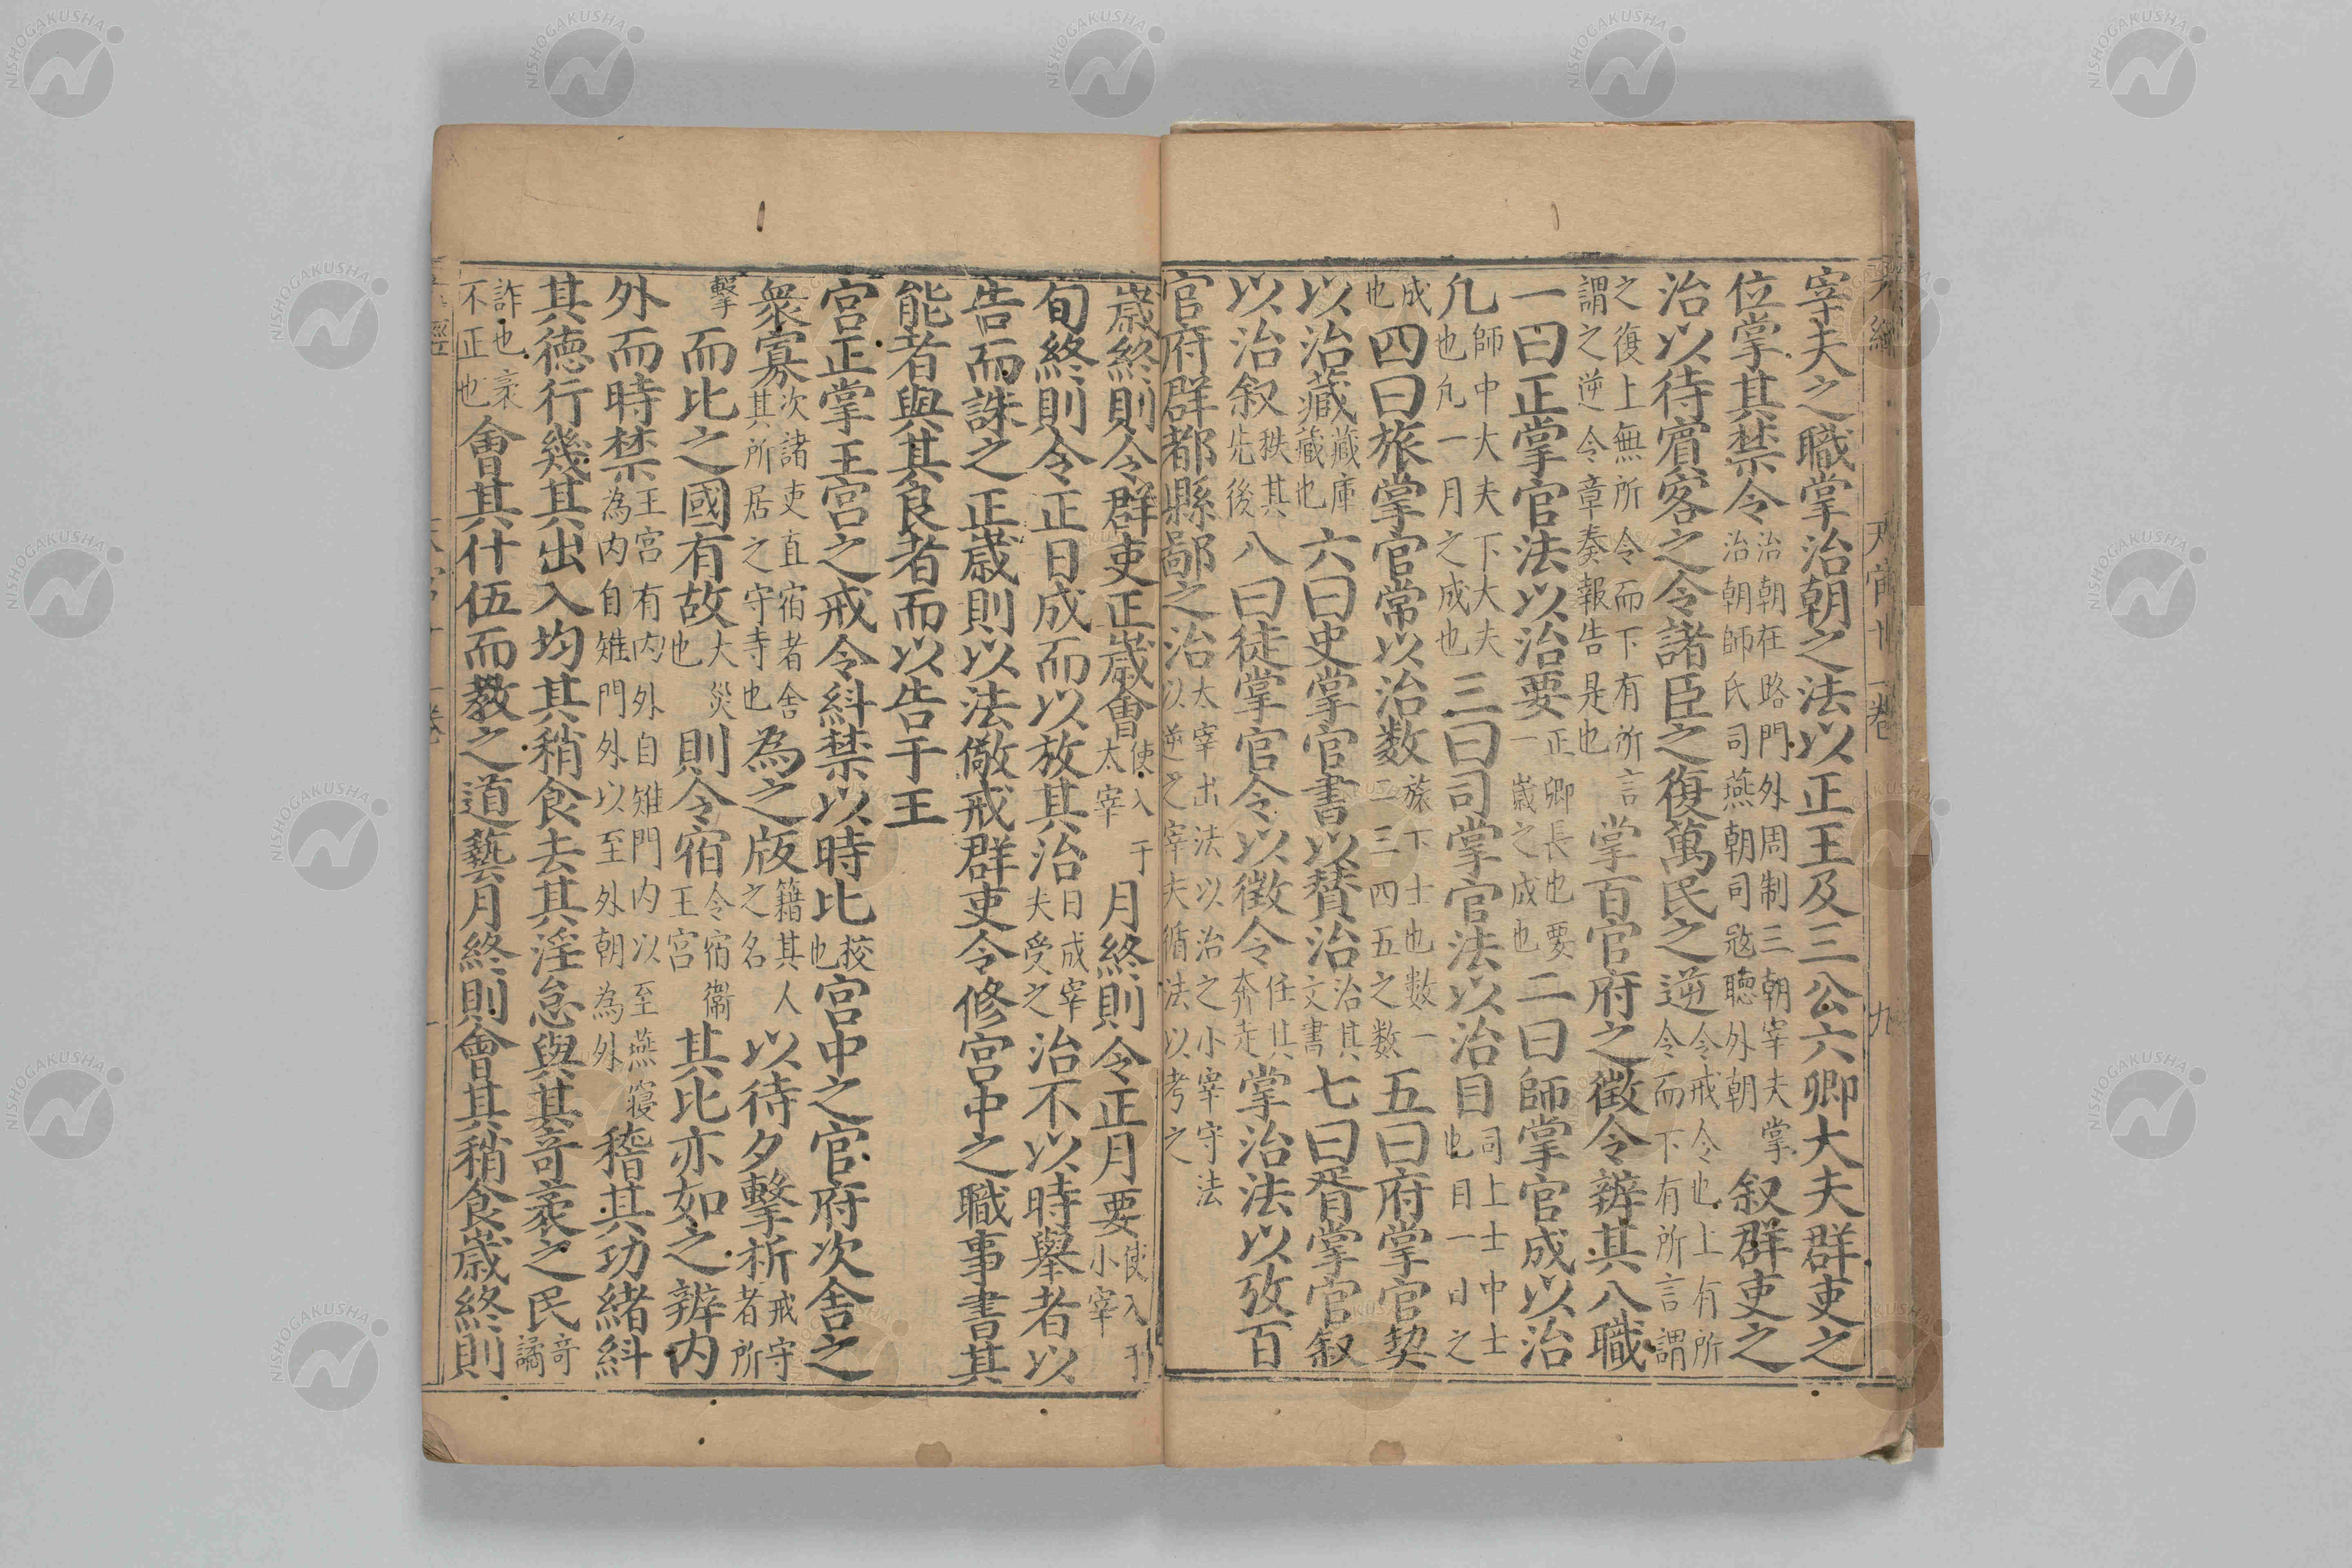 宰夫之職掌治朝之法以正王及三公六卿大夫群吏之
位掌其禁令治朝在路門外周制三朝宰夫掌治朝師氏司燕朝司寇聽外朝叙群吏之
治以待賓客之令諸臣之復萬民之逆令戒令也上有所令而下有所言謂
之復上無所令而下有所言謂之逆令章奏報告是也掌百官府之徵令辨其八職
一曰正掌官法以治要正卿長也要一歲之成也二曰師掌官成以治
凡師中大夫下大夫也凡一月之成也三曰司掌官法以治目司上士中士也目一日之
成也四曰旅掌官常以治数旅下士也数一二三四五之数五曰府掌官契
以治藏藏庫藏也六曰史掌官書以贊治治其文書七曰胥掌官叙
以治叙秩其先後八曰徒掌官令以徵令任其奔走掌治法以攷百
官府群都縣鄙之治太宰出法以治之小宰守法以逆之宰夫循法以考之
歲終則令群吏正歲會使入于太宰月終則令正月要使入于小宰
旬終則令正日成而以放其治日成宰夫受之治不以時舉者以
告而誅之 正歲則以法儆戒群吏令修宫中之職事書其
能者與其良者而以告于王
宫正掌王宫之戒令糾禁以時比挍也宫中之官府次舍之
衆寡次諸吏直宿者舍其所居之守寺也為之版籍其人之名以待夕擊柝戒守者所
擊而比之國有故大災也則令宿令宿衛王宫其比亦如之辨内
外而時禁王宫有内外自雉門内以至燕寢為内自雉門外以至外朝為外稽其功緒糾
其徳行幾其出入均其稍食去其淫怠與其竒衺之民竒譎
詐也衺不正也會其什伍而教之道藝月終則會其稍食歲終則